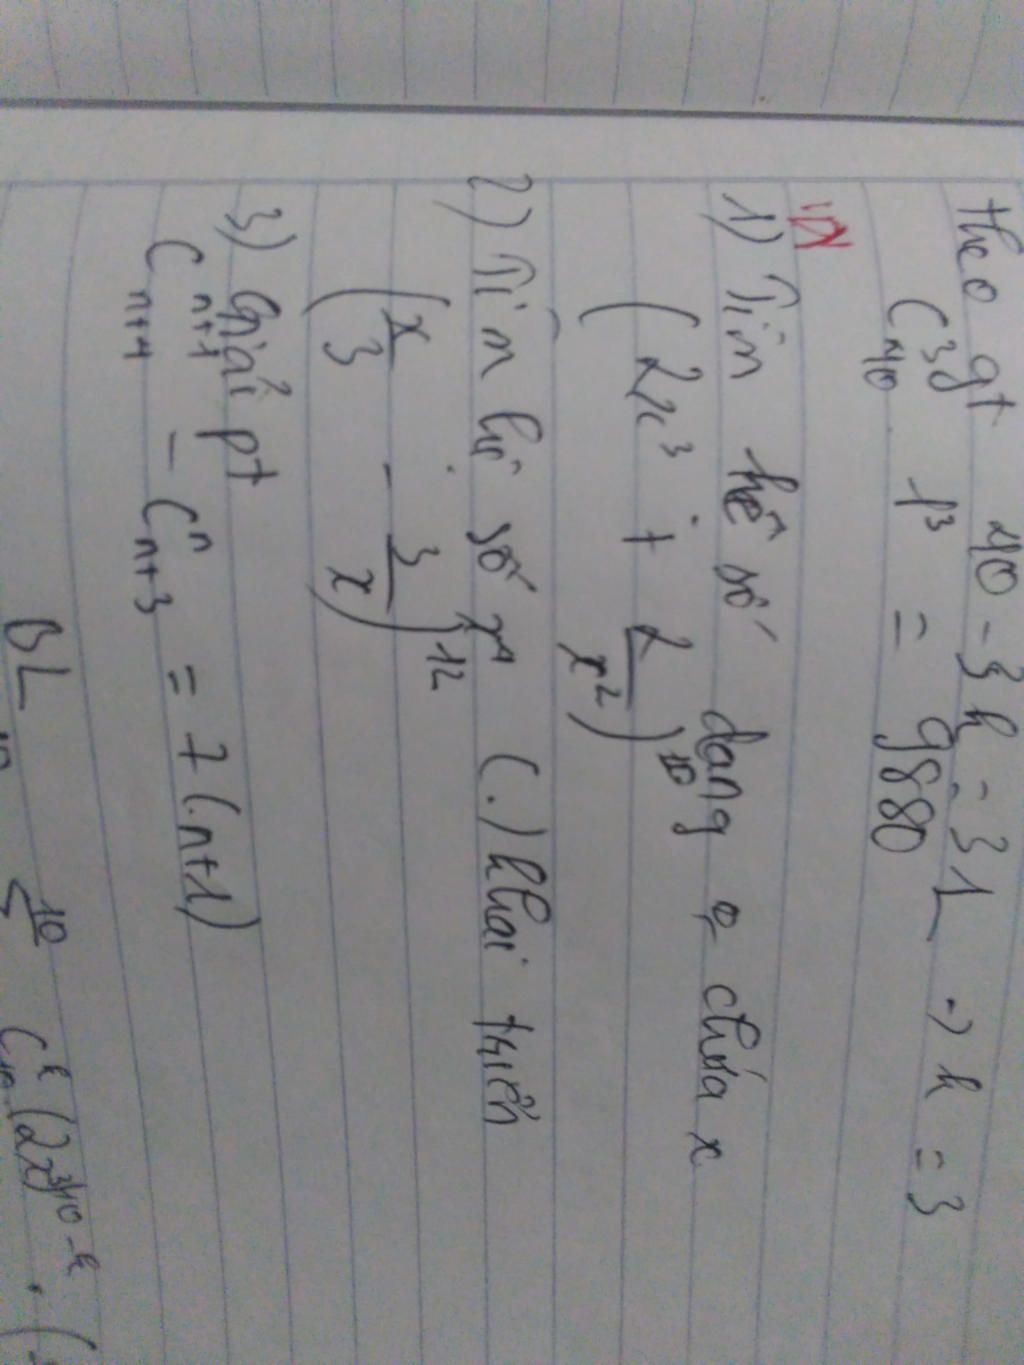 theo gt 40 - 3k = 31 → k = 3
C³₄₀ 1³ = 9880
1) Tìm hệ số dạng o chứa x
(2x³ + 2/x²)¹⁰
2) Tìm hệ số x⁴ (.) khai triển
(x/3 - 3/x)¹²
3) Giải pt
Cⁿ⁺¹ₙ₊₄ - Cⁿₙ₊₃ = 7(n+1)
BL
10
Cᵏ₁₀ (2x³)¹⁰⁻ᵏ . (